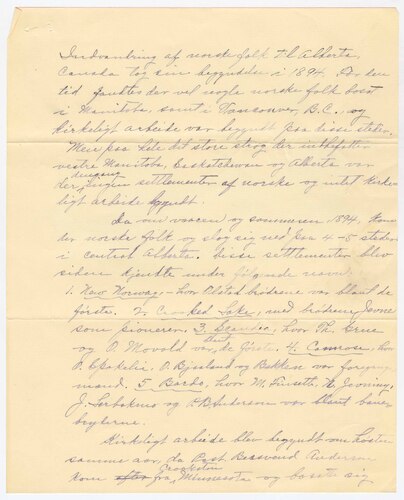 Indvandring af norske folk til Alberta,
Canada tog sin begyndelse i 1894. Før den
tid fandtes der vel nogle norske folk bosat
i Manitoba, samt i Vancouver, B.C. og
kirkeligt arbeide var begyndt paa disse steder.
Men paa hele det store strøg der indbefatter
vestre Manitoba, Saskatchewan og Alberta var
der dengang ingen settlementer af norske og intet kirke-
ligt arbeide begyndt.
Da om vaaren og sommeren 1894, kom
der norske folk og slog sig ned paa 4-5 steder
i central Alberta. Disse settlementer blev
siden kjendte under følgende navne:
1. New Norway, - hvor Olstad brødrene var blant de
første. 2. Crooked Lake, med brødrene
som pionerer. 3. hvor Th.
og O. Movald var de første. 4. Camrose, hvor
O. O. og Bakken var
mænd. 5. Bardo, hvor M. Finseth, N. Jevning,
J. og P.B. Anderson var blant bane-
bryterne.
Kirkeligt arbeide blev begyndt om høsten
samme aar, da Past. Anderson
kom fra Crookston Minnesota og bosate sig